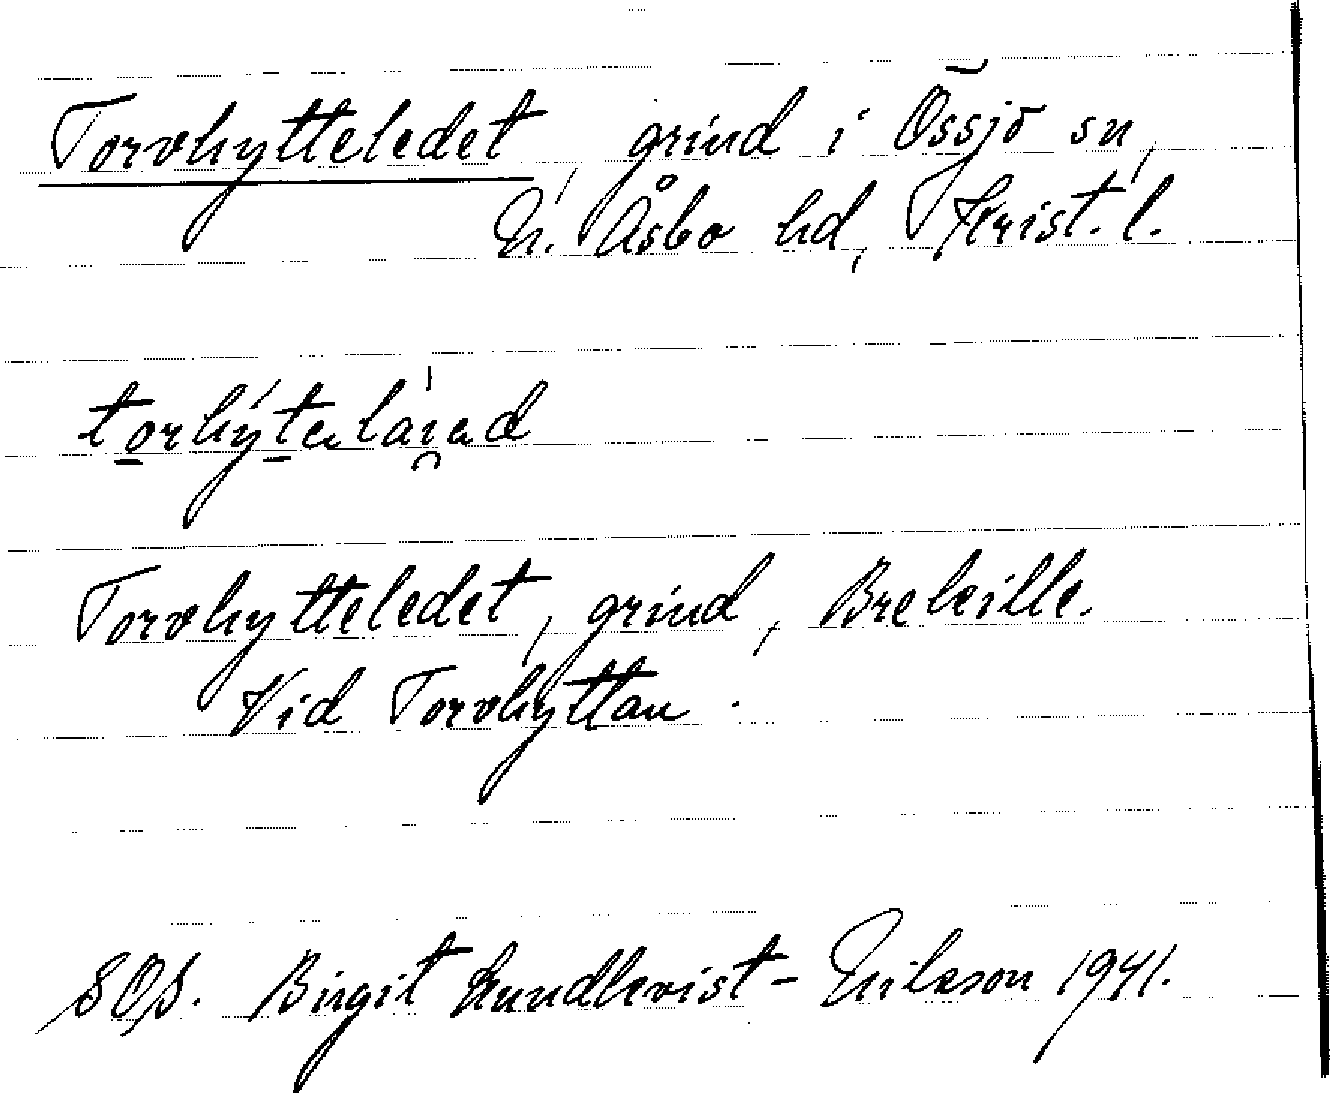 Torvhytteledet, grind i Össjö sn,
N. Åsbo hd, Krist. l.
torhýtalaıad
Torvhytteledet, grind, Breleille.
Vid Torvhyttan.
SOS. Birgit Lundkvist-Erikson 1941.